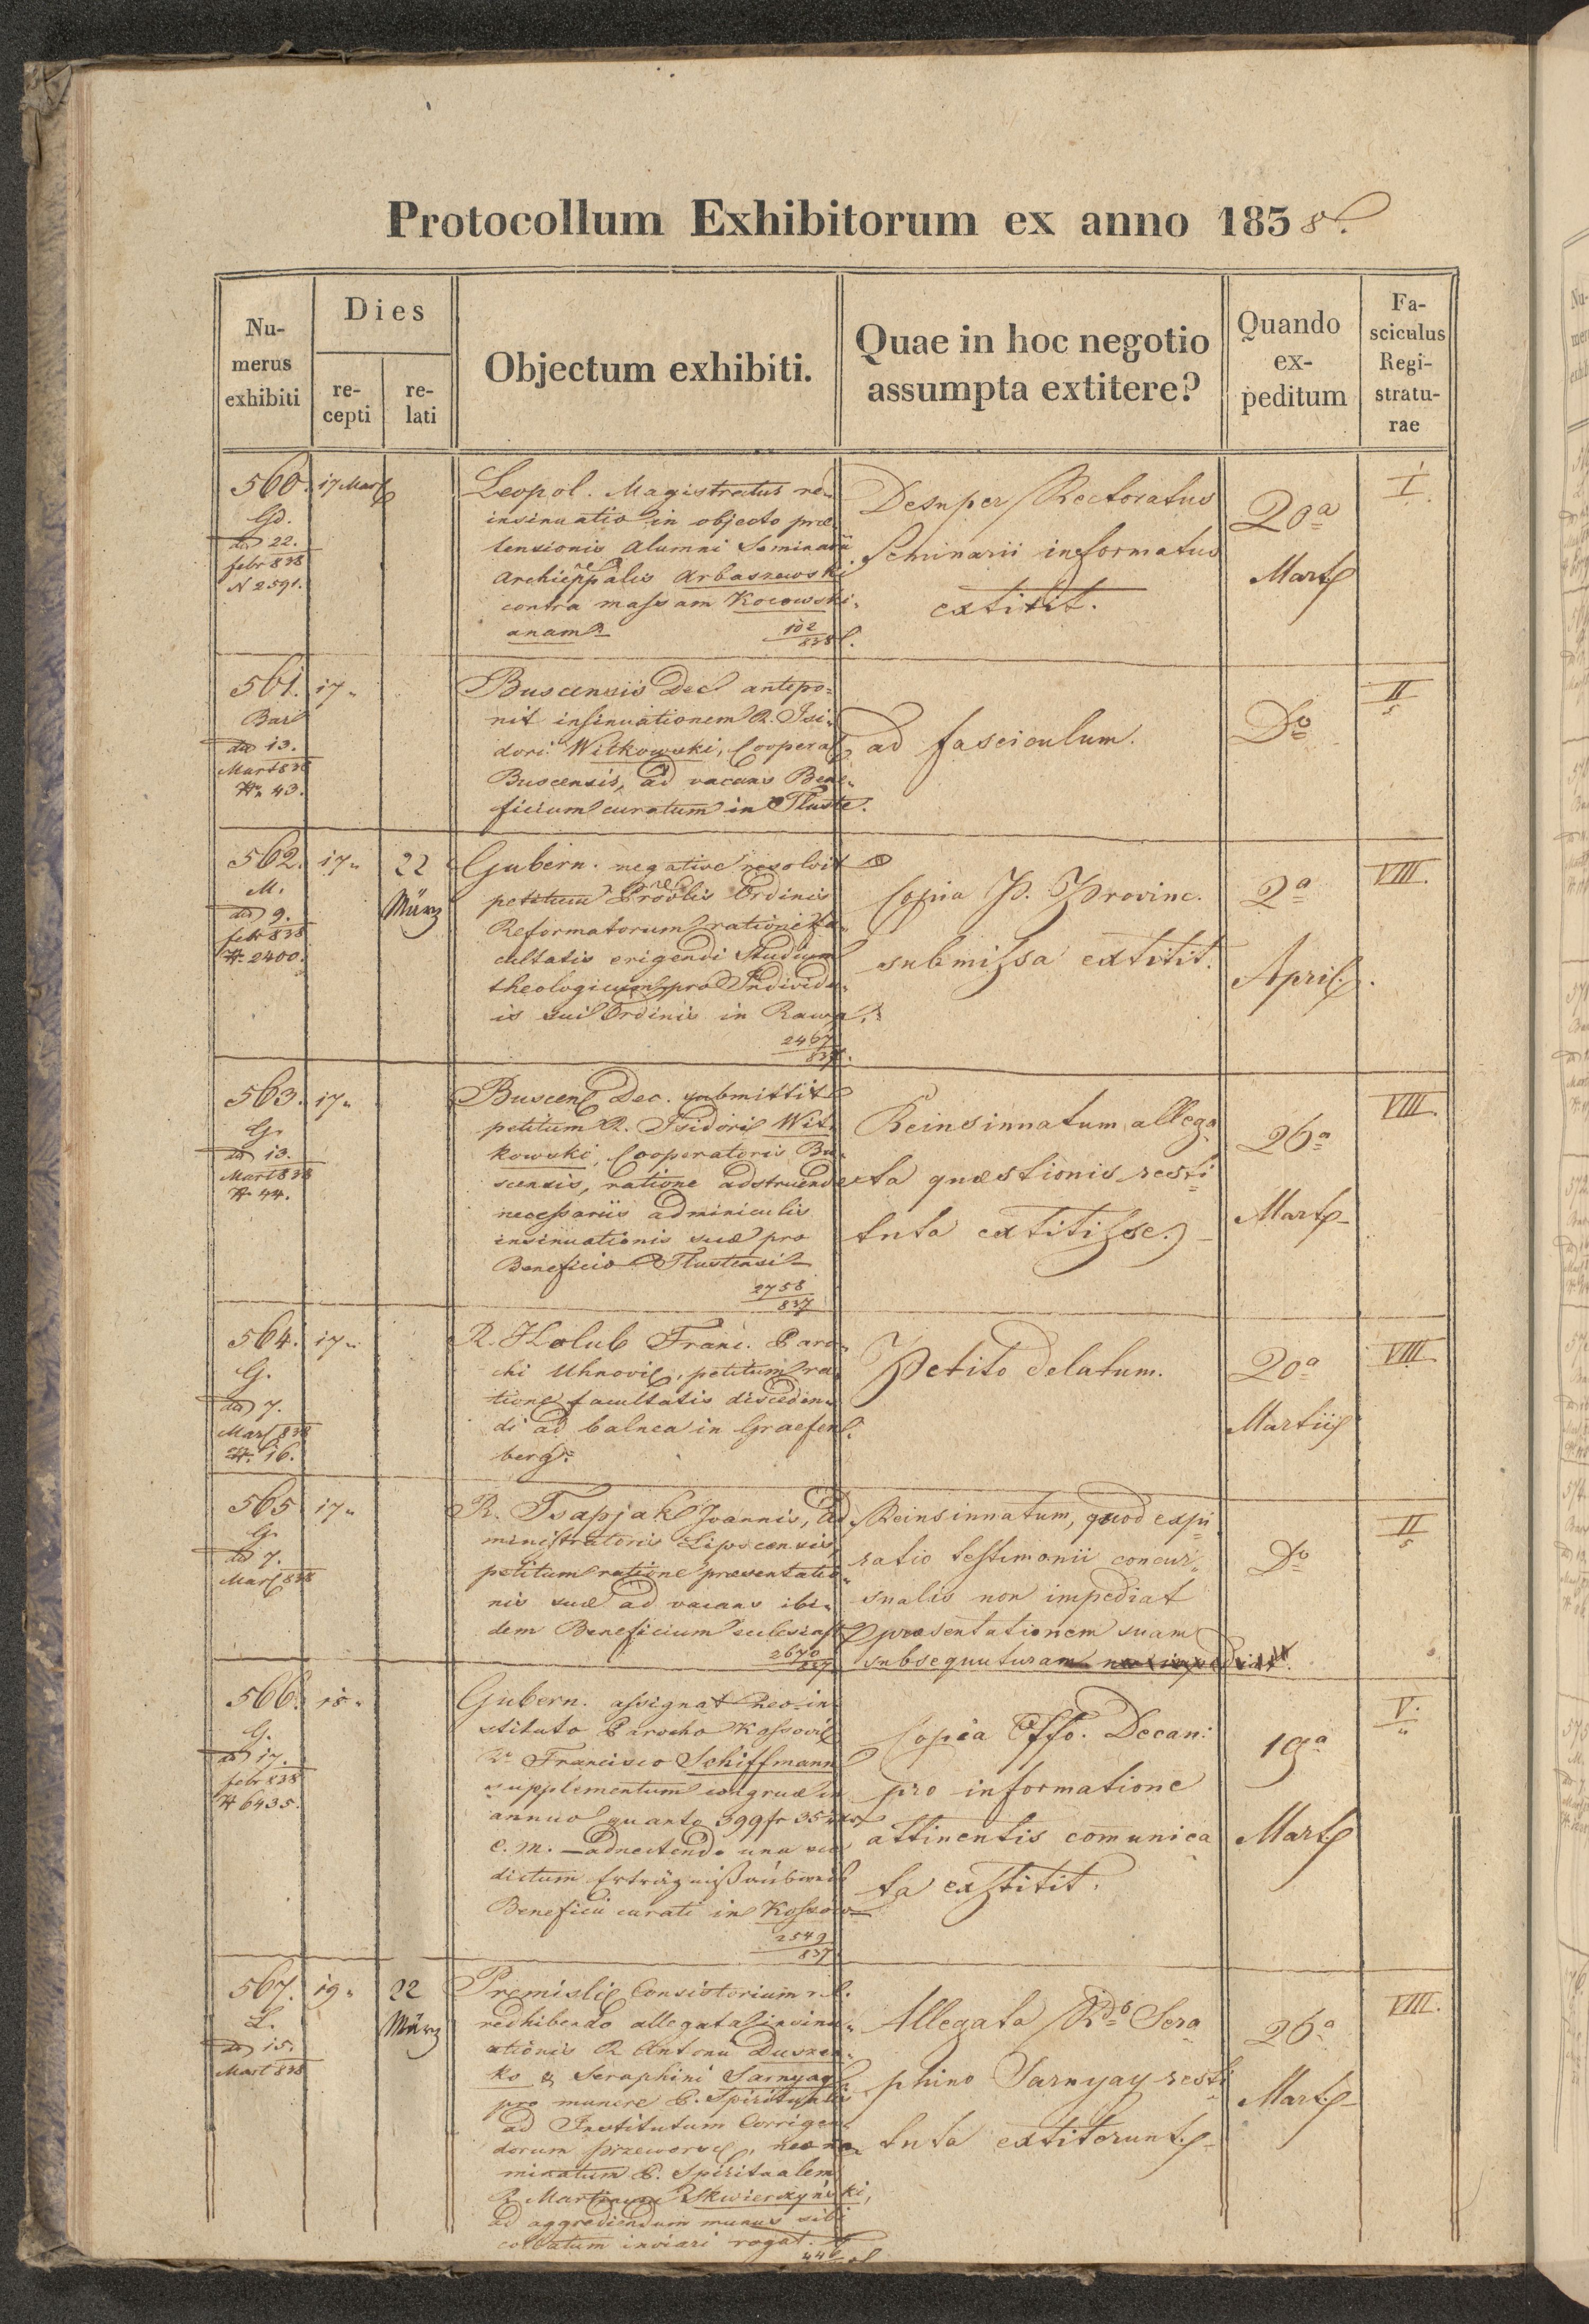 Protocollum Exhibitorum ex anno 1858.
Nu-
merus
exhibiti
Dies
re-
cepti
re-
lati
Objectum exhibiti.
Quae in hoc negotio
assumpta extitere?
Quando
ex-
peditum
Fa-
sciculus
Regi-
stratu-
rae
560.
Gd.
dd 22.
febr 838
N 2591.
17 Mart
Leopol. Magistratus re-
insinuatio in objecto præ-
tensionis Alumni Seminarii
Archieppālis Arbaszewski
contra massam Kocowski-
anam
102
838
Desuper Rectoratus
Seminarii informatus
extitit.
20a
Mart
I.
561.
dd 13.
Mart 838
N. 43.
17„
Buscensis Dec. antepo-
nit insinuationem R. Isi-
dori Witkowski, Cooperat
Buscensis, ad vacans Bene-
ficium curatum in Tluste.
ad fasciculum.
Do
II
5
562.
M.
dd 9.
febr 838
N. 2400.
17„
22
März
Gubern. negative resolvit
petitum Provlis Ordinis
Reformatorum ratione fa-
cultatis erigendi Studium
theologicum pro Individu-
is sui Ordinis in Rawa.
2467
837.
Copia P. Provinc.
submissa extitit.
2a
April.
VIII.
563.
G.
dd 13.
Mart 838
N. 44.
17„
Buscen Dec. submittit
petitum R. Isidori Wit-
kowski, Cooperatoris Bu-
scensis, ratione adstruend
necessariis adminiculis
insinuationis suæ pro
Beneficio Tlustensi
2758
837
Reinsinuatum, allega
ta quæstionis resti
tuta extitisse.
26a
Mart
VIII.
564.
G.
dd 7.
Mart 838
N. 16.
17„
R. Holub Franc. Paro-
chi Uhnovie, petitum ra-
tione facultatis disceden-
di ad balnea in Graefen-
berg.
Petito delatum.
20a
Martii
VIII
565
G.
dd 7.
Mart 838
17„
R. Tsapjak Joannis, Ad
ministratoris Lipscensis,
petitum ratione præsentatio-
nis suæ ad vacans ibi-
dem Beneficium ecclesiast
2670
837
Reinsinuatum, quod expi
ratio testimonii concur-
sualis non impediat
præsentationem suam
subsequuturam
Do
II
5
566.
G.
dd 17.
febr 838
N 6435.
18„
Gubern. assignat neo-in-
stituto Parocho Kossovie
Ro Francisco Schiffmann
supplementum congruæ in
annuo quanto 399 fr 35
c. m. – adnectendo una
dictum Erträgnißausweis
Beneficii curati in Kossow
2549
837
Copia Offo. Decan:
pro informatione
attinentis comunica
ta extitit.
19a
Mart
V.
567.
L.
dd 15.
Mart 838
19„
22
März
Premislie Consistorium r. l.
redhibendo allegata insinu-
ationis R Antonii Duszen-
ko & Seraphini Sarnyay
pro munere C. Spiritualis
ad Institutum Corrigen-
dorum przeworsc, neo no-
minatum C. Spiritualem
R Martinum Skwierzyński,
ad aggrediendum munus sibi
collatum inviari rogat.
Allegata Rdo Sera
phino Sarnyay resti
tuta extiterunt
26a
Mart
VIII.